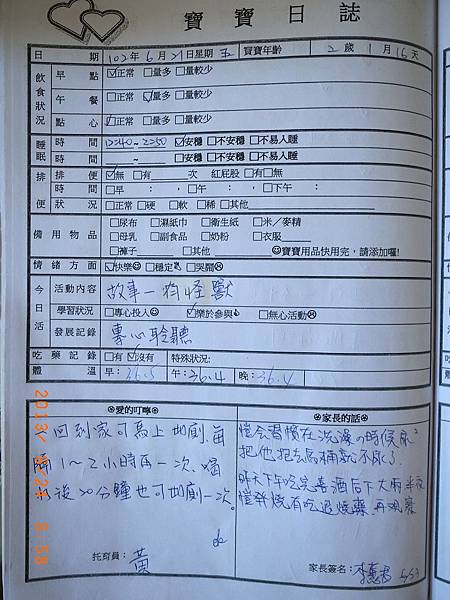 寶寶日誌
日期 102年6月21日星期五 寶寶年齡 2歲1月16天
飲食狀況 早點 ☑正常 □量多 □量較少
午餐 □正常 ☑量多 □量較少
點心 ☑正常 □量多 □量較少
睡眠 時間 12:40~2:50 ☑安穩 □不安穩 □不易入睡
時間 ~ □安穩 □不安穩 □不易入睡
排便 排便 ☑無 □有 次 紅屁股 □有 □無
時間 □早 : , □午 : , □下午 :
狀況 □正常 □硬 □軟 □稀 □其他
備用物品 □尿布 □濕紙巾 □衛生紙 □米/麥精
□母乳 □副食品 □奶粉 □衣服
□褲子 □其他 ☺寶寶用品快用完,請添加囉!
情緒方面 ☑快樂☺ □穩定 □哭鬧☹
今日活 活動內容 故事一 怪獸
學習狀況 □專心投入☺ ☑樂於參與 □無心活動☹
發展記錄 專心聆聽
吃藥記錄 □有 ☑沒有 特殊狀況:
體溫 早:36.5 午:36.4 晚:36.4
⊛愛的叮嚀⊛
回到家可馬上如廁,每
隔1~2小時再一次、喝
水後20分鐘也可如廁一次。
托育員:黃
⊛家長的話⊛
愷會習慣在洗澡的時候尿
把他抱去馬桶就不尿了
昨天下午吃完喜酒後下大雨 半夜
愷發燒有吃退燒藥 再觀察
家長簽名:李
2013/ 6/24 8:58